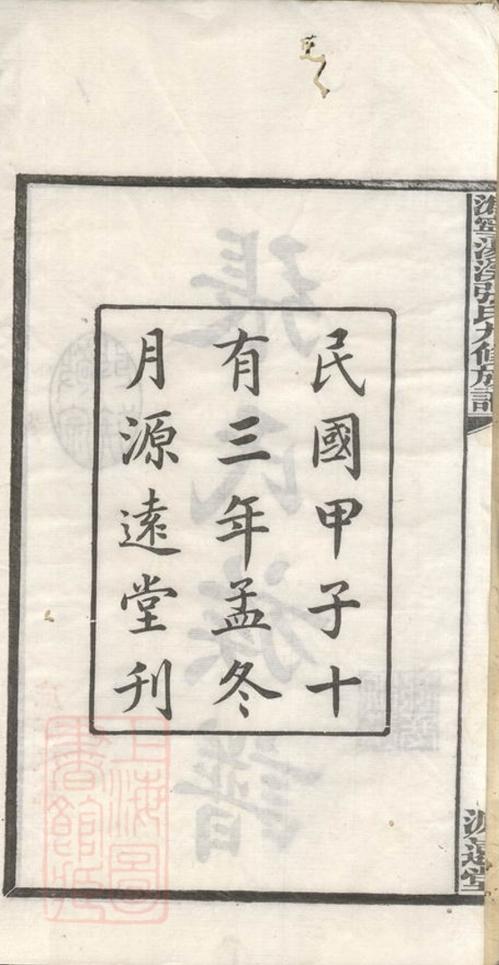 民國甲子十
有三年孟冬
月源遠堂刊
張氏族譜
源遠堂
上海圖
書館藏